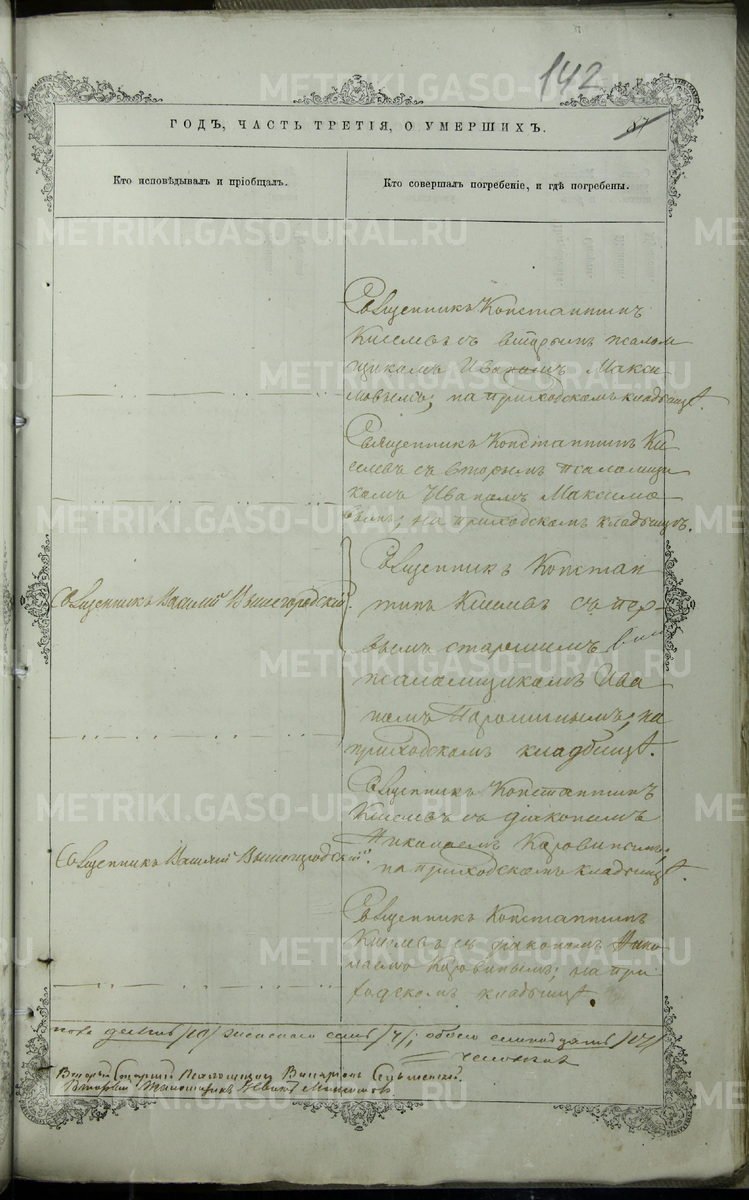 142
ГОДЪ, ЧАСТЬ ТРЕТІЯ, О УМЕРШИХЪ.
87
Кто исповѣдывалъ и пріобщалъ.
Кто совершалъ погребеніе, и гдѣ погребены.
Священникъ Константинъ
Киселевъ съ вторымъ псалом
щикомъ Иваномъ Макси
мовымъ; на приходскомъ кладбищѣ.
Священникъ Константинъ Ки
селевъ съ вторымъ псаломщи
комъ Иваномъ Максимо
вымъ; на приходскомъ кладбищѣ.
Священникъ Василій Вышегородскій.
Священникъ Констан
тинъ Киселевъ съ пер
вымъ старшимъ
псаломщикомъ Ива
номъ на
приходскомъ кладбищѣ.
Священникъ Василій Вышегородскій.
Священникъ Константинъ
Киселевъ съ діакономъ
Николаемъ Коровинымъ;
на приходскомъ кладбищѣ.
Священникъ Константинъ
Киселевъ съ діакономъ Нико
лаемъ Коровинымъ; на при
ходскомъ кладбищѣ.
пола десять /10/ женскаго семь /7/; обоего семнадцать /17/
человѣкъ
Старшій Псаломщикъ
Вторый Псаломщикъ Иванъ Максимовъ
METRIKI.GASO-URAL.RU